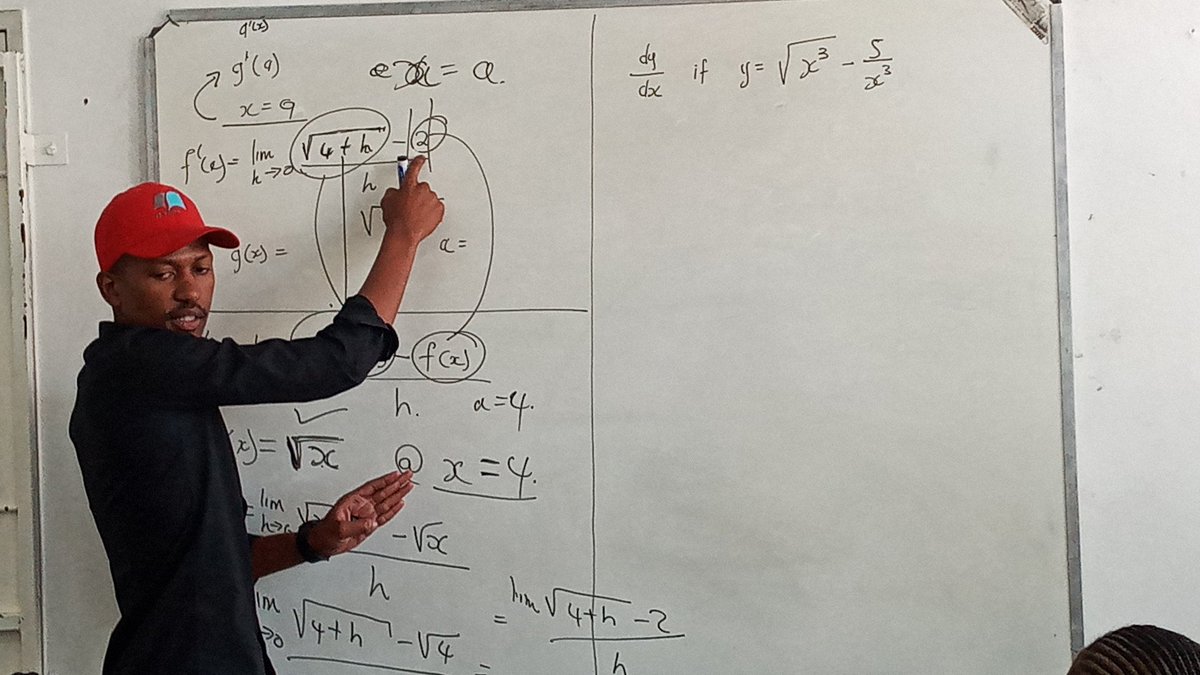 g'(x)
g'(a)
x = a
x = a.
f'(a) = lim h→0 √(4+h) - 2
h
√
g(x) =
a =
- f(x)
h.
a = 4.
(x) = √x @ x = 4.
= lim h→0 √ - √x
h
lim →0 √(4+h) - √4 = lim √(4+h) - 2
h
dy/dx if y = √x³ - 5/x³